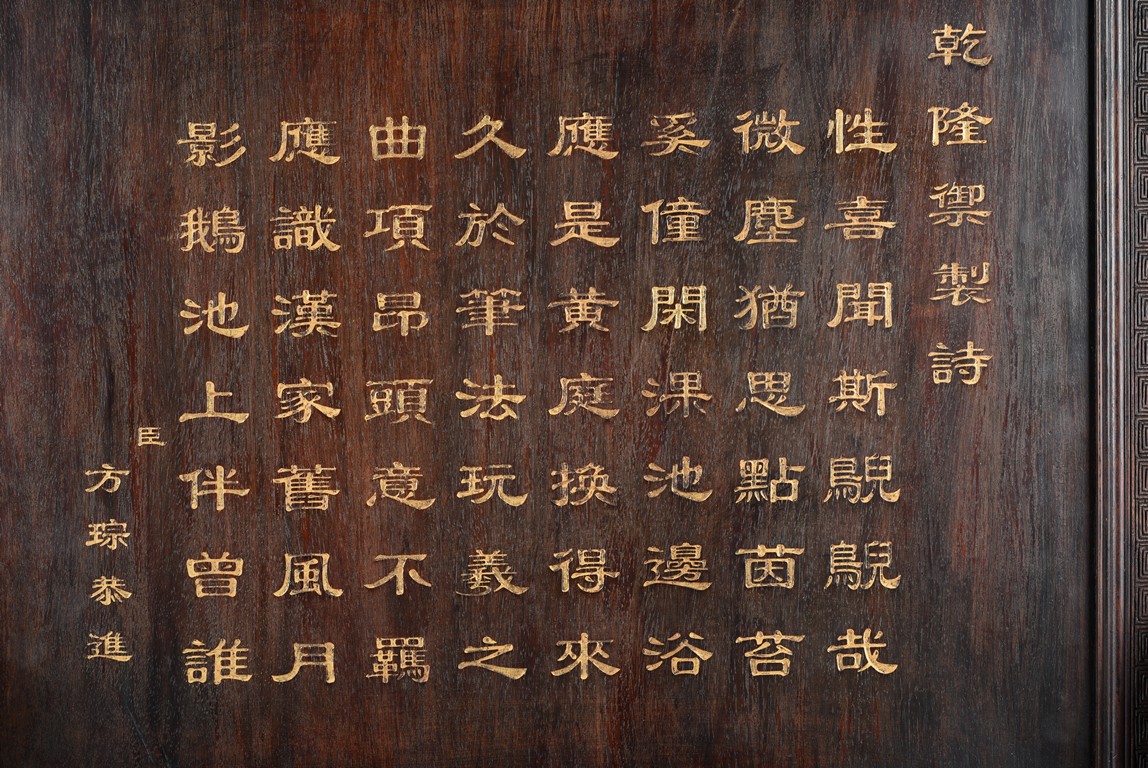 乾隆禦製詩
性喜聞斯鶃鶃哉
微塵猶思點茵苔
奚僮閑淉池邊浴
應是黄庭換得來
久於筆法玩羲之
曲項昂頭意不羈
應識漢家舊風月
影鵝池上伴曾誰
臣
方琮恭進